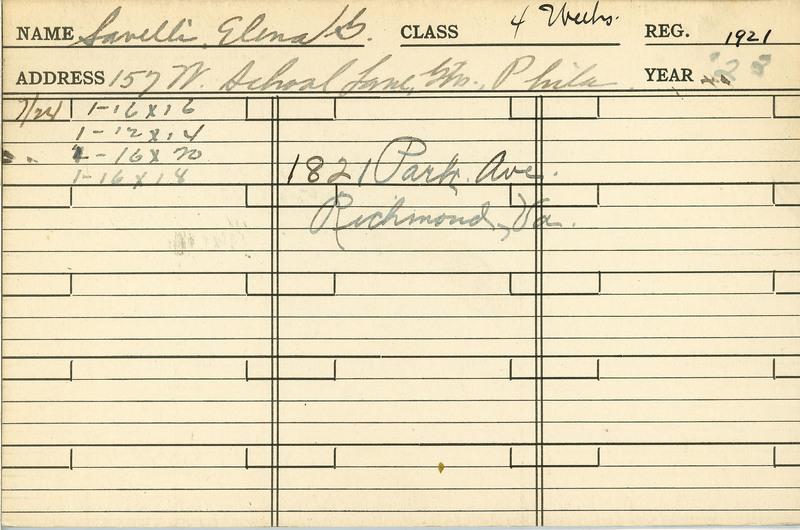 NAME Savelli, Elena G. CLASS 4 Weeks. REG. 1921
ADDRESS 157 W. School Lane, Gtn., Phila YEAR
7/24 1-16 x 16
1-12 x 14
1-16 x 20
1-16 x 18
1821 Park Ave.
Richmond, Va.